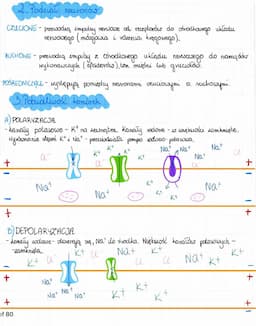 2. Podział neuronów
CZUCIOWE - prowadzą impulsy nerwowe od receptorów do ośrodkowego układu
nerwowego (mózgowia i rdzenia kręgowego),
RUCHOWE - prowadzą impulsy z ośrodkowego układu nerwowego do narządów
wykonawczych (efektorów), tzn. mięśni lub gruczołów
POŚREDNICZĄCE - występują pomiędzy neuronami czuciowym a ruchowym.
3. Pobudliwość komórek
A) POLARYZACJA
- kanały potasowe - K⁺ na zewnątrz, kanały sodowe - w większości zamknięte.
stężeń K⁺ i Na⁺ - pompa sodowo-potasowa.
K⁺ K⁺ K⁺ Na⁺ Na⁺ Na⁺
+ +
- -
Na⁺ K⁺ K⁺ K⁺ Na⁺ Na⁺
+ +
B) DEPOLARYZACJA
- kanały sodowe - otwierają się, Na⁺ do środka. Większość kanałów potasowych -
zamknięta.
K⁺ K⁺ Na⁺ K⁺ Na⁺ K⁺
- -
+ +
Na⁺ Na⁺ Na⁺ K⁺ K⁺ K⁺
of 80